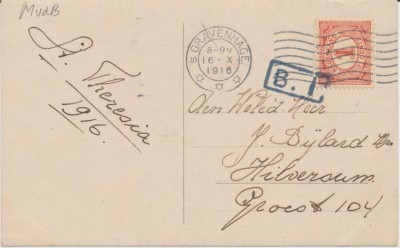 MvdB
St. Theresia
1916.
'S GRAVENHAGE
8-9V
16·X
1916
1
B.P
Den Weled Heer
J. Dijlard
Hilversum.
Groest 104